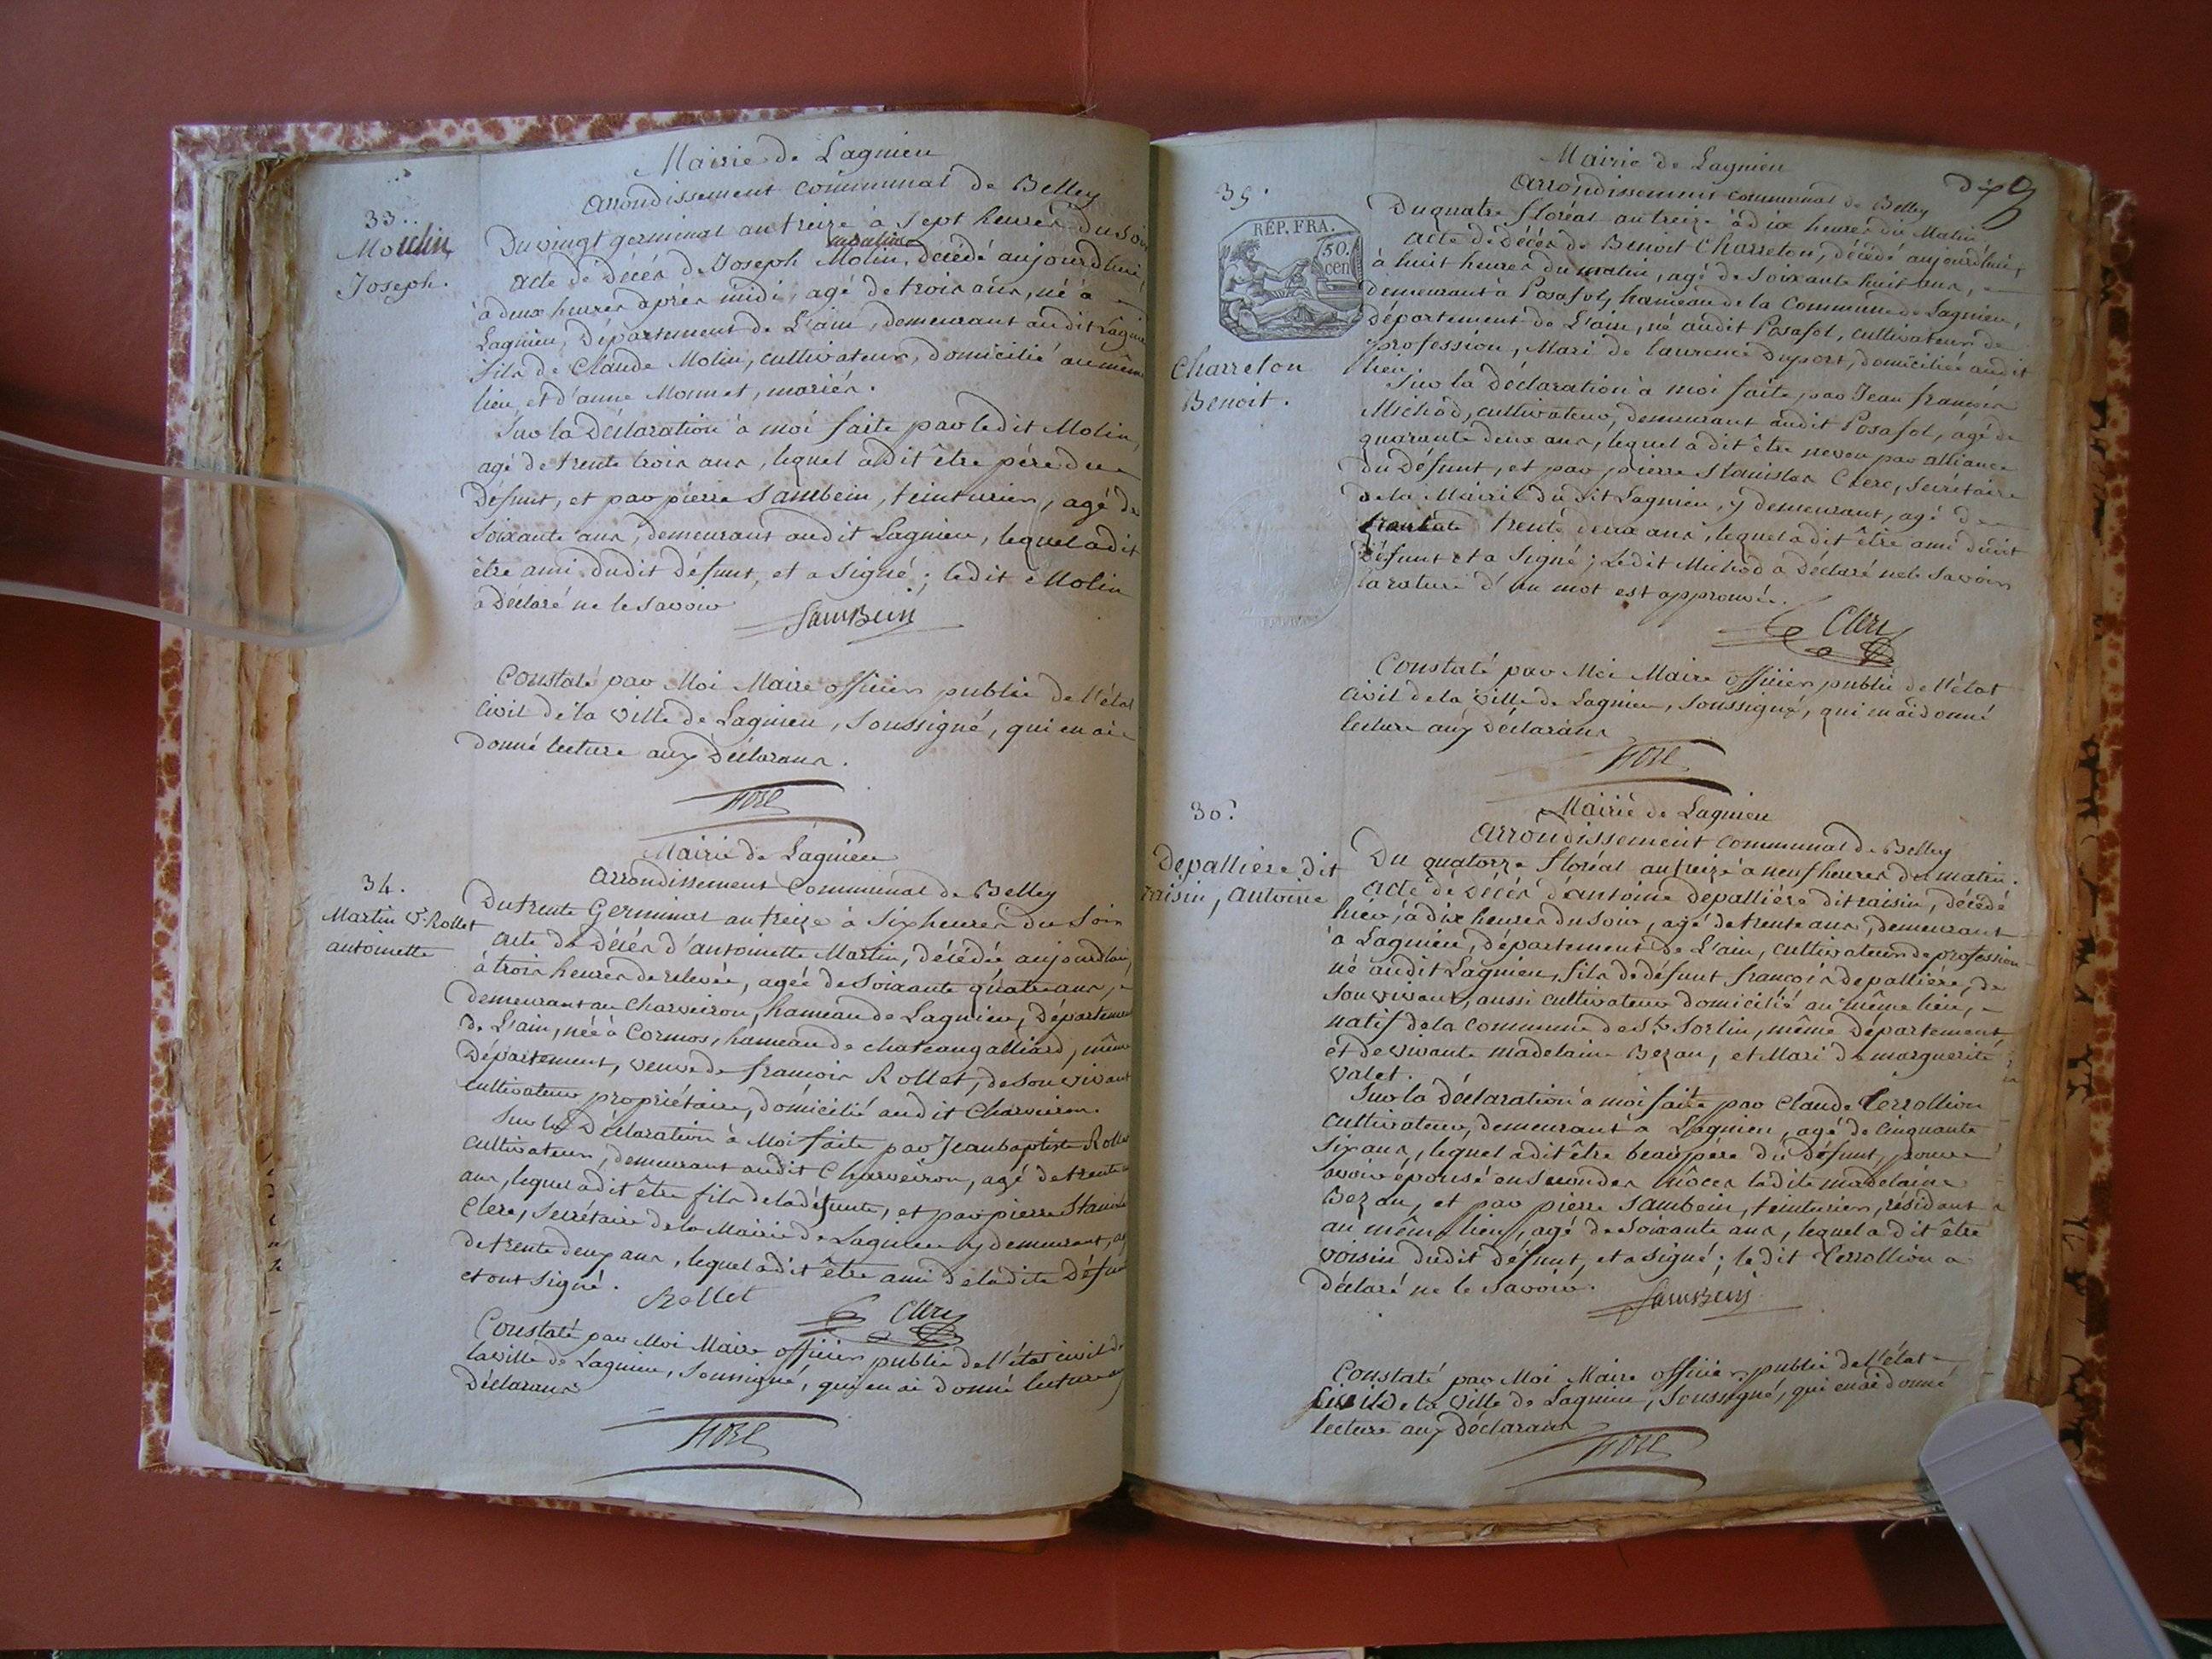 Mairie de Lagnieu
Arrondissement Communal de Belley
33.
Moulin
Joseph.
Du vingt germinal an treize à Sept heures du soir
moulin
acte de Décés de Joseph Molin, décédé aujourdhui,
à deux heures après midi, agé de trois ans, né à
Lagnieu, Département de L'ain, demeurant audit Lagnieu
fils de Claude Molin, cultivateur, domicilié au même
lieu, et d'anne Monnet, mariés.
Sur la Déclaration à moi faite par ledit Molin,
agé de trente trois ans, lequel a dit être père du
Défunt, et par pierre Sambein, teinturier, agé de
soixante ans, demeurant audit Lagnieu, lequel a dit
être ami dudit défunt, et a signé ; ledit Molin
a Déclaré ne le savoir
SamBein
Constaté par Moi Maire officier public de l'état
Civil de la ville de Lagnieu, Soussigné, qui en ai
donné lecture aux Déclarans.
Mairie de Lagnieu
Arrondissement Communal de Belley
34.
Martin Ve. Rollet
antoinette
Du trente Germinal an treize à Six heures du Soir
acte de Décés d'antoinette Martin, décédée aujourdhui,
à trois heures de relevée, agée de soixante quatre ans,
demeurant au Charveiron, hameau de Lagnieu, Département
de L'ain, née à Cormos, hameau de chateaugalliard, même
Département, veuve de françois Rollet, de son vivant
cultivateur propriétaire, domicilié audit Charveiron.
Sur la Déclaration à Moi faite par Jean baptiste Rollet
cultivateur, demeurant audit Charveiron, agé de trente
ans, lequel a dit être fils de la défunte, et par pierre Stanislas
Clerc, Secrétaire de la Mairie de Lagnieu y demeurant, agé
de trente deux ans, lequel a dit être ami de ladite Défunte
et ont signé.
Rollet Clerc
Constaté par Moi Maire officier public de l'état civil de
la ville de Lagnieu, Soussigné, qui en ai donné lecture aux
Déclarans
Mairie de Lagnieu
Arrondissement communal de Belley
dix 9
35.
RÉP. FRA.
50.
cen
Charreton
Benoit.
Du quatre floréal an treize à dix heures du Matin
acte de Décés de Benoit Charreton, décédé aujourdhui,
à huit heures du matin, agé de soixante huit ans,
demeurant à Posafol, hameau de la Commune de Lagnieu,
département de L'ain, né audit Posafol, cultivateur de
profession, Mari de laurence Duport, domiciliée audit
lieu.
Sur la déclaration à moi faite par Jean françois
Michod, cultivateur, demeurant audit Posafol, agé de
quarante deux ans, lequel a dit être neveu par alliance
du Défunt, et par pierre Stanislas Clerc, Secrétaire
de la Mairie dudit Lagnieu, y demeurant, agé de
trente deux ans, lequel a dit être ami dudit
Défunt et a Signé ; Ledit Michod a Déclaré ne le savoir
la rature d'un mot est approuvée.
Clerc
Constaté par Moi Maire officier public de l'état
Civil de la ville de Lagnieu, soussigné, qui en ai donné
lecture aux déclarans
Mairie de Lagnieu
Arrondissement communal de Belley
Depallière dit
raisin, Antoine
Du quatorze floréal an treize à neuf heures du matin.
Acte de Décés d'antoine depallière dit raisin, décédé
hier, à dix heures du soir, agé de trente ans, demeurant
à Lagnieu, département de L'ain, cultivateur de profession
né audit Lagnieu, fils de défunt françois depallière, de
son vivant, aussi cultivateur domicilié au même lieu,
natif de la commune de St. Sorlin, même Département,
et de vivante madelaine Bezan, et Mari de marguerite
Valet.
Sur la déclaration à moi faite par Claude Cerrollion
cultivateur, demeurant à Lagnieu, agé de cinquante
six ans, lequel a dit être beau père du défunt, pour
avoir épousé en secondes Nôces ladite madelaine
Bezan, et par pierre Sambein, teinturier, résidant
au même lieu, agé de soixante ans, lequel a dit être
voisin dudit défunt, et a signé ; ledit Cerrollion a
déclaré ne le savoir.
SamBein
Constaté par Moi Maire officier public de l'état
civil de la ville de Lagnieu, soussigné, qui en ai donné
lecture aux déclarans